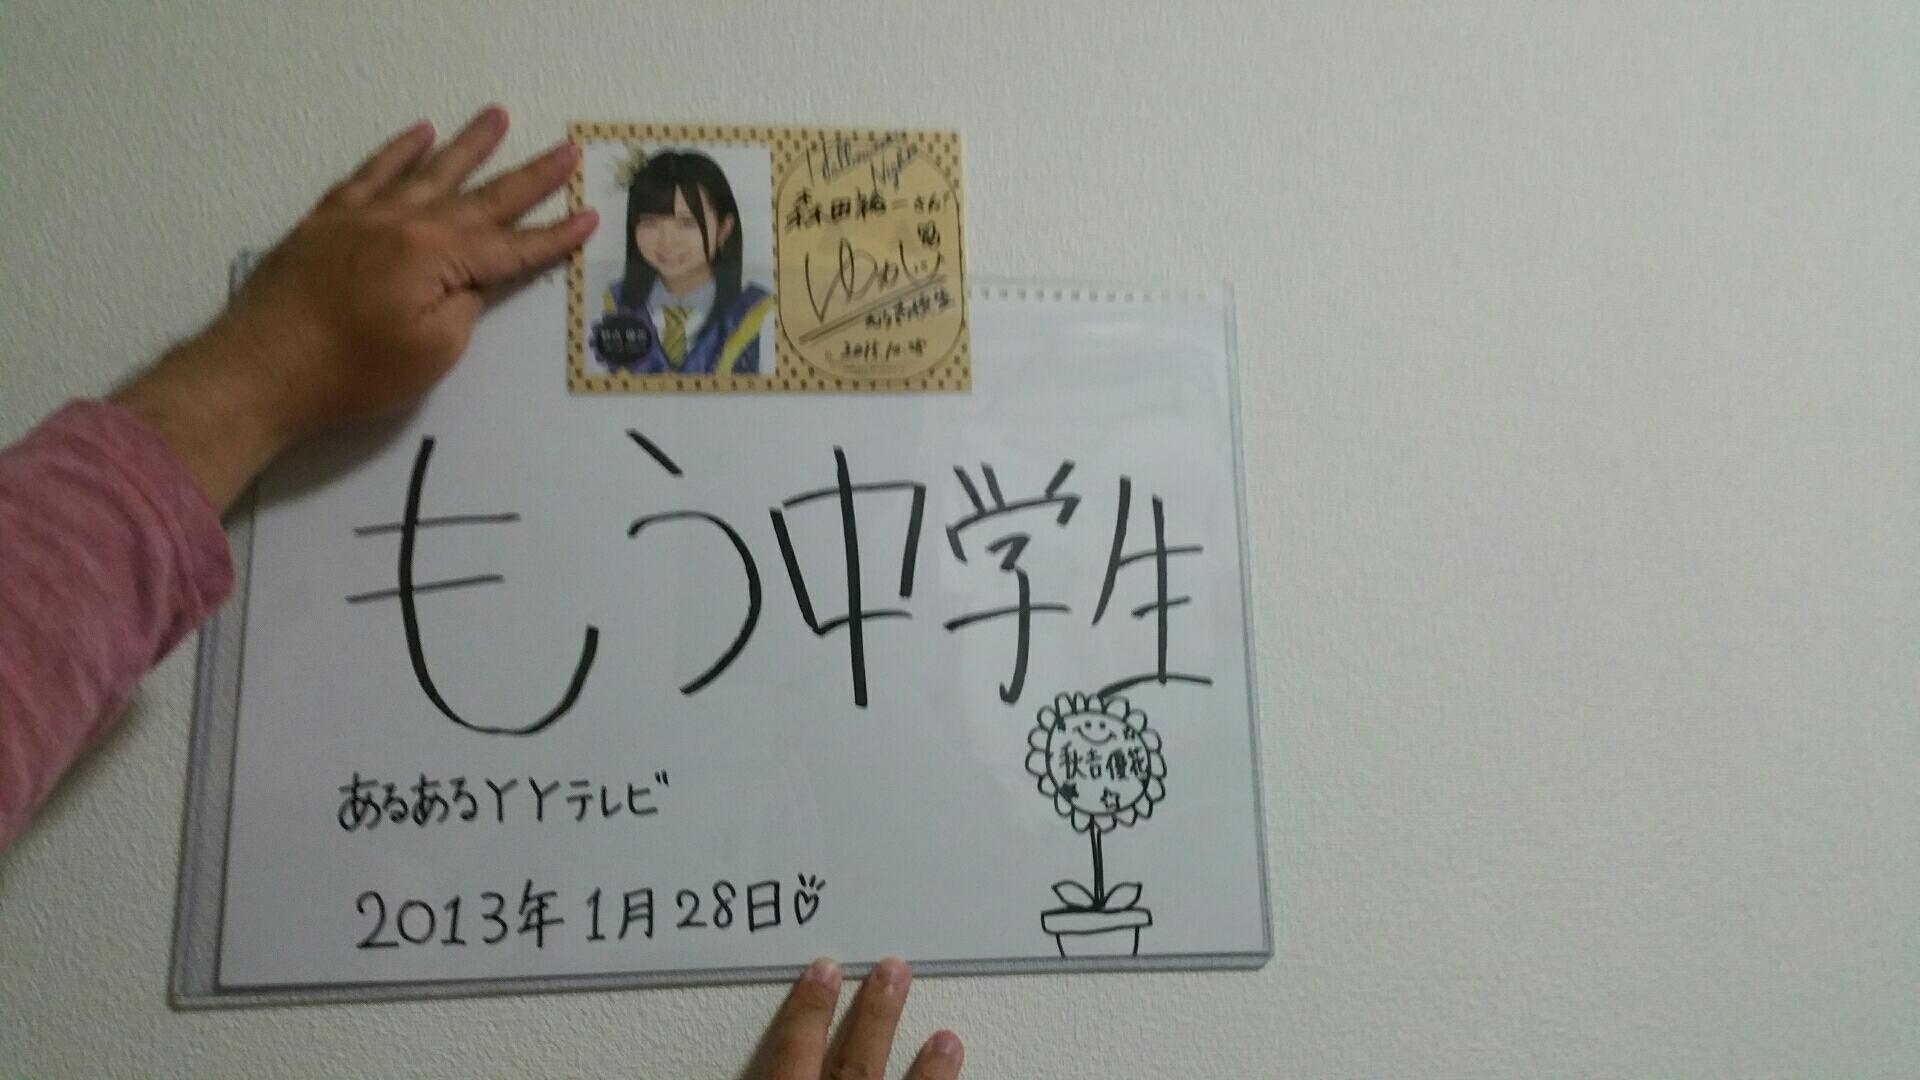 Halloween
Night
森田裕一さんへ
もう高校生
2015.10.25
もう中学生
秋吉優花
あるあるYYテレビ
2013年1月28日